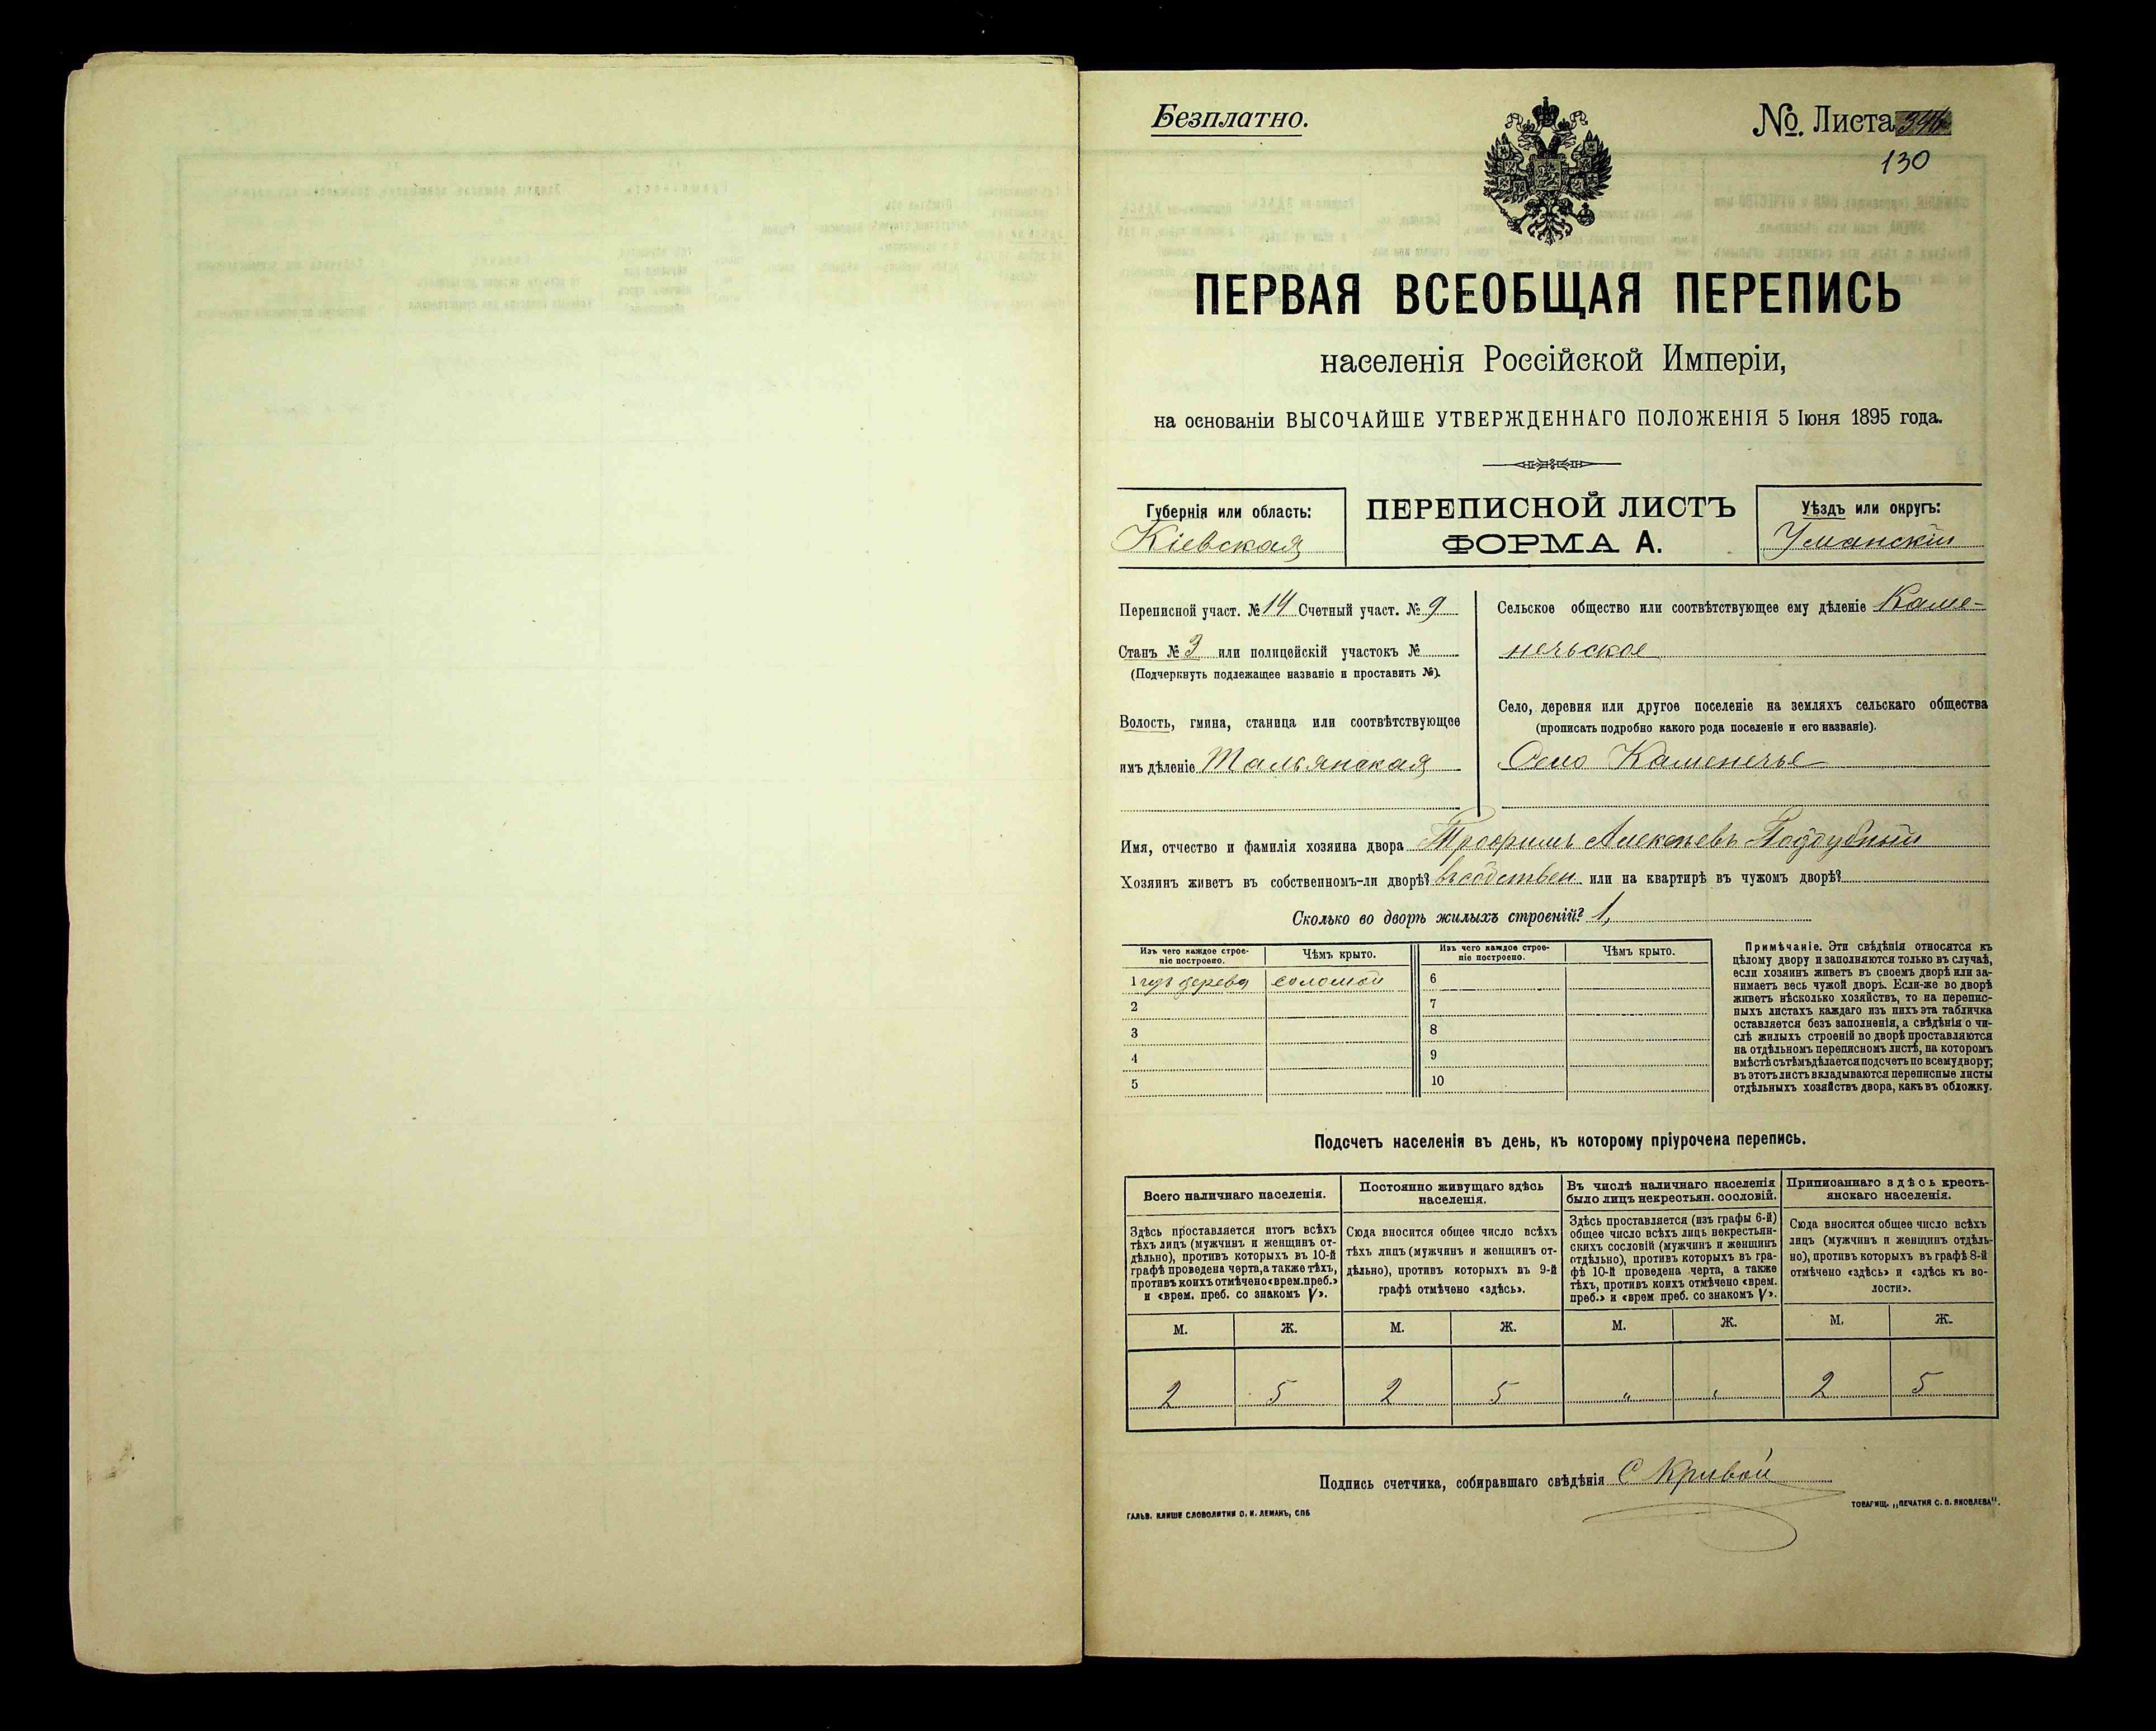 Безплатно.
№. Листа
130
ПЕРВАЯ ВСЕОБЩАЯ ПЕРЕПИСЬ
населенія Россійской Имперіи,
на основаніи ВЫСОЧАЙШЕ УТВЕРЖДЕННАГО ПОЛОЖЕНІЯ 5 Іюня 1895 года.
Губернія или область:
Кіевская
ПЕРЕПИСНОЙ ЛИСТЪ
ФОРМА А.
Уѣздъ или округъ:
Уманскій
Переписной участ. № 14 Счетный участ. № 9
Станъ № 3 или полицейскій участокъ №
(Подчеркнуть подлежащее названіе и проставить №).
Волость, гмина, станица или соотвѣтствующее
имъ дѣленіе Тальянская
Сельское общество или соотвѣтствующее ему дѣленіе Каме-
нечьское
Село, деревня или другое поселеніе на земляхъ сельскаго общества
(прописать подробно какого рода поселеніе и его названіе).
Село Каменечье
Имя, отчество и фамилія хозяина двора Трофимъ Алексѣевъ Поддубный
Хозяинъ живетъ въ собственномъ-ли дворѣ? въ собствен или на квартирѣ въ чужомъ дворѣ?
Сколько во дворѣ жилыхъ строеній? 1,
Изъ чего каждое строе-
ніе построено.
Чѣмъ крыто.
Изъ чего каждое строе-
ніе построено.
Чѣмъ крыто.
1 изъ дерева соломой 6
2 7
3 8
4 9
5 10
Примѣчаніе. Эти свѣдѣнія относятся къ
цѣлому двору и заполняются только въ случаѣ,
если хозяинъ живетъ въ своемъ дворѣ или за-
нимаетъ весь чужой дворъ. Если-же во дворѣ
живетъ нѣсколько хозяйствъ, то на перепис-
ныхъ листахъ каждаго изъ нихъ эта табличка
оставляется безъ заполненія, а свѣдѣнія о чи-
слѣ жилыхъ строеній во дворѣ проставляются
на отдѣльномъ переписномъ листѣ, на которомъ
вмѣстѣ сътѣмъ дѣлается подсчетъ по всему двору;
въ этотъ листъ вкладываются переписные листы
отдѣльныхъ хозяйствъ двора, какъ въ обложку.
Подсчетъ населенія въ день, къ которому пріурочена перепись.
Всего наличнаго населенія.
Здѣсь проставляется итогъ всѣхъ
тѣхъ лицъ (мужчинъ и женщинъ от-
дѣльно), противъ которыхъ въ 10-й
графѣ проведена черта, а также тѣхъ,
противъ коихъ отмѣчено «врем. преб.»
и «врем. преб. со знакомъ V».
Постоянно живущаго здѣсь
населенія.
Сюда вносится общее число всѣхъ
тѣхъ лицъ (мужчинъ и женщинъ от-
дѣльно), противъ которыхъ въ 9-й
графѣ отмѣчено «здѣсь».
Въ числѣ наличнаго населенія
было лицъ некрестьян. сословій.
Здѣсь проставляется (изъ графы 6-й)
общее число всѣхъ лицъ некрестьян-
скихъ сословій (мужчинъ и женщинъ
отдѣльно), противъ которыхъ въ гра-
фѣ 10-й проведена черта, а также
тѣхъ, противъ коихъ отмѣчено «врем.
преб.» и «врем преб. со знакомъ V».
Приписаннаго здѣсь кресть-
янскаго населенія.
Сюда вносится общее число всѣхъ
лицъ (мужчинъ и женщинъ отдѣль-
но), противъ которыхъ въ графѣ 8-й
отмѣчено «здѣсь» и «здѣсь къ во-
лости».
М. Ж. М. Ж. М. Ж. М. Ж.
2 5 2 5 " " 2 5
Подпись счетчика, собиравшаго свѣдѣнія С Кривой
ГАЛЬВ. КЛИШЕ СЛОВОЛИТНИ О. И. ЛЕМАНЪ, СПБ
ТОВАРИЩ. „ПЕЧАТНЯ С. П. ЯКОВЛЕВА".